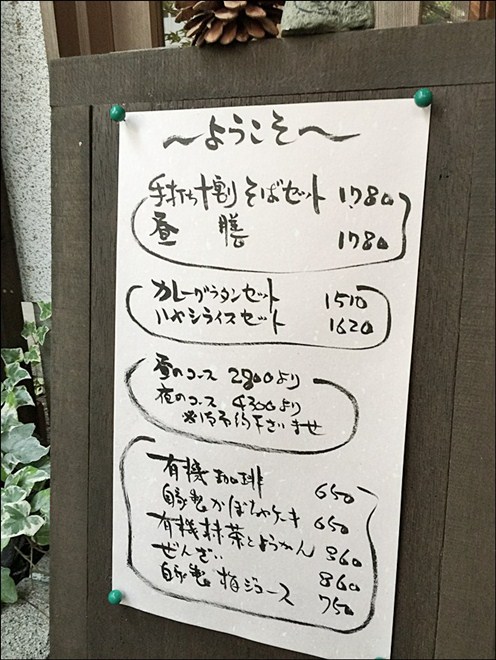 ～ようこそ～
手打ち十割そばセット 1780
昼膳 1780
カレーグラタンセット 1510
ハヤシライスセット 1620
昼のコース 2800より
夜のコース 4300より
※御予約下さいませ
有機珈琲 650
自家製かぼちゃケーキ 650
有機抹茶とようかん 860
ぜんざい 860
自家製梅ジュース 750